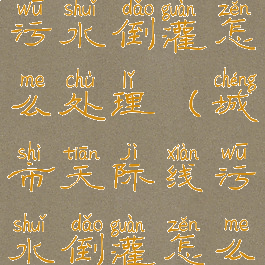 wū shuǐ dào guàn zěn
污水倒灌怎
me chù lǐ chéng
么处理（城
shì tiān jì xiàn wū
市天际线污
shuǐ dào guàn zěn me
水倒灌怎么